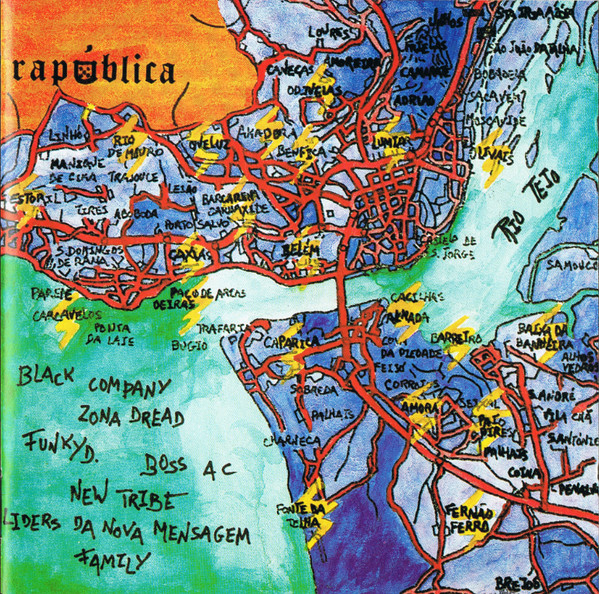 rapública
LOURES
CANEÇAS
ODIVELAS
CAMARATE
SÃO JOÃO DA TALHA
BOBADELA
SACAVEM
MOSCAVIDE
OLIVAIS
LUMIAR
LINHÓ
RIO
DE MOURO
QUELUZ
AMADORA
BENFICA
MANIQUE
DE CIMA
TRAJOUCE
LEIÃO
BARCARENA
CARNAXIDE
ESTORIL
TIRES
ABOBODA
PORTO SALVO
RIO TEJO
S. DOMINGOS
DE RANA
CAXIAS
BELÉM
CASTELO DE
S. JORGE
SAMOUCO
PAREDE
CARCAVELOS
PAÇO DE ARCOS
OEIRAS
PONTA
DA LAJE
TRAFARIA
BUGIO
CACILHAS
ALMADA
COVA
DA PIEDADE
FEIJÓ
BARREIRO
BAIXA DA
BANHEIRA
ALHOS
VEDROS
CAPARICA
SOBREDA
CORROIOS
PALHAIS
AMORA
PAIO
PIRES
S. ANDRÉ
VILA CHÃ
CHARNECA
PALHAIS
COINA
FONTE DA
TELHA
FERNÃO
FERRO
BLACK COMPANY
ZONA DREAD
FUNKY D.
BOSS AC
NEW TRIBE
LIDERS DA NOVA MENSAGEM
FAMILY